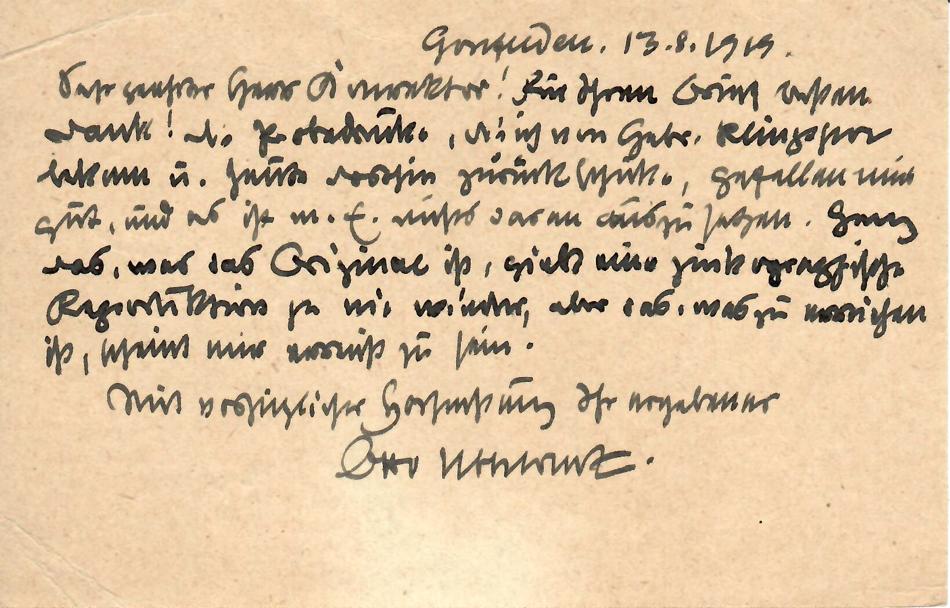 Gmunden. 13.8.1919.
Sehr geehrter Herr Direktor! Für Ihren Brief besten
Dank! Die Probedrucke, die ich von Gebr. Klingspor
bekam u. heute dorthin zurückschicke, gefallen mir
gut, und es ist m. E. nichts daran auszusetzen. Ganz
das, was das Original ist, giebt eine zinkographische
Reproduktion ja nie wieder, aber das, was zu erreichen
ist, scheint mir erreicht zu sein.
Mit vorzüglicher Hochachtung Ihr ergebener
Otto